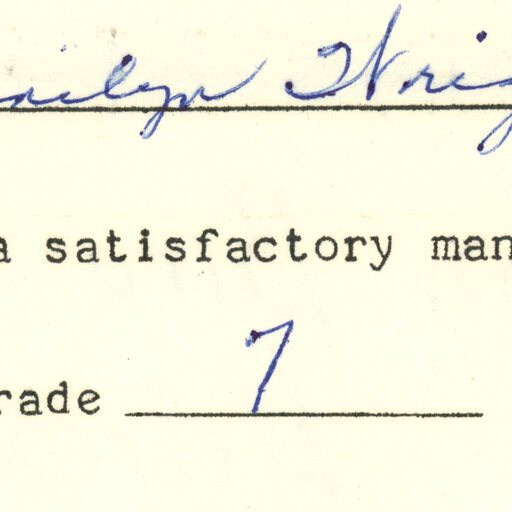 arilyn Wrig
a satisfactory man
rade 7